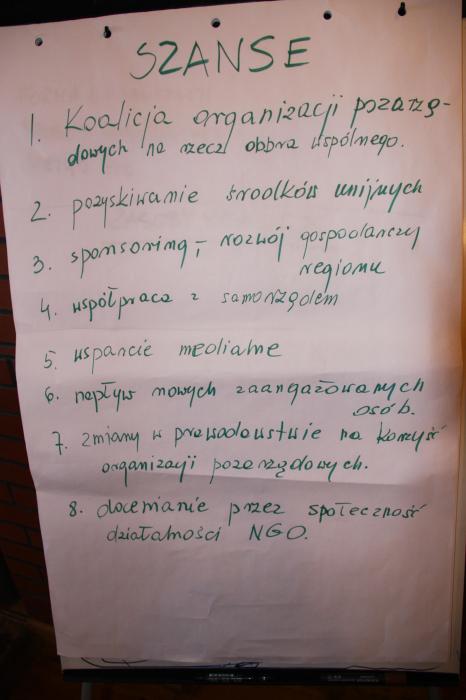 SZANSE
1. Koalicja organizacji pozarzą-
dowych na rzecz dobra wspólnego.
2. pozyskiwanie środków unijnych
3. sponsoring, - rozwój gospodarczy
regionu
4. współpraca z samorządem
5. wsparcie medialne
6. napływ nowych zaangażowanych
osób.
7. zmiany w prawodawstwie na korzyść
organizacji pozarządowych.
8. docenianie przez społeczność
działalności NGO.